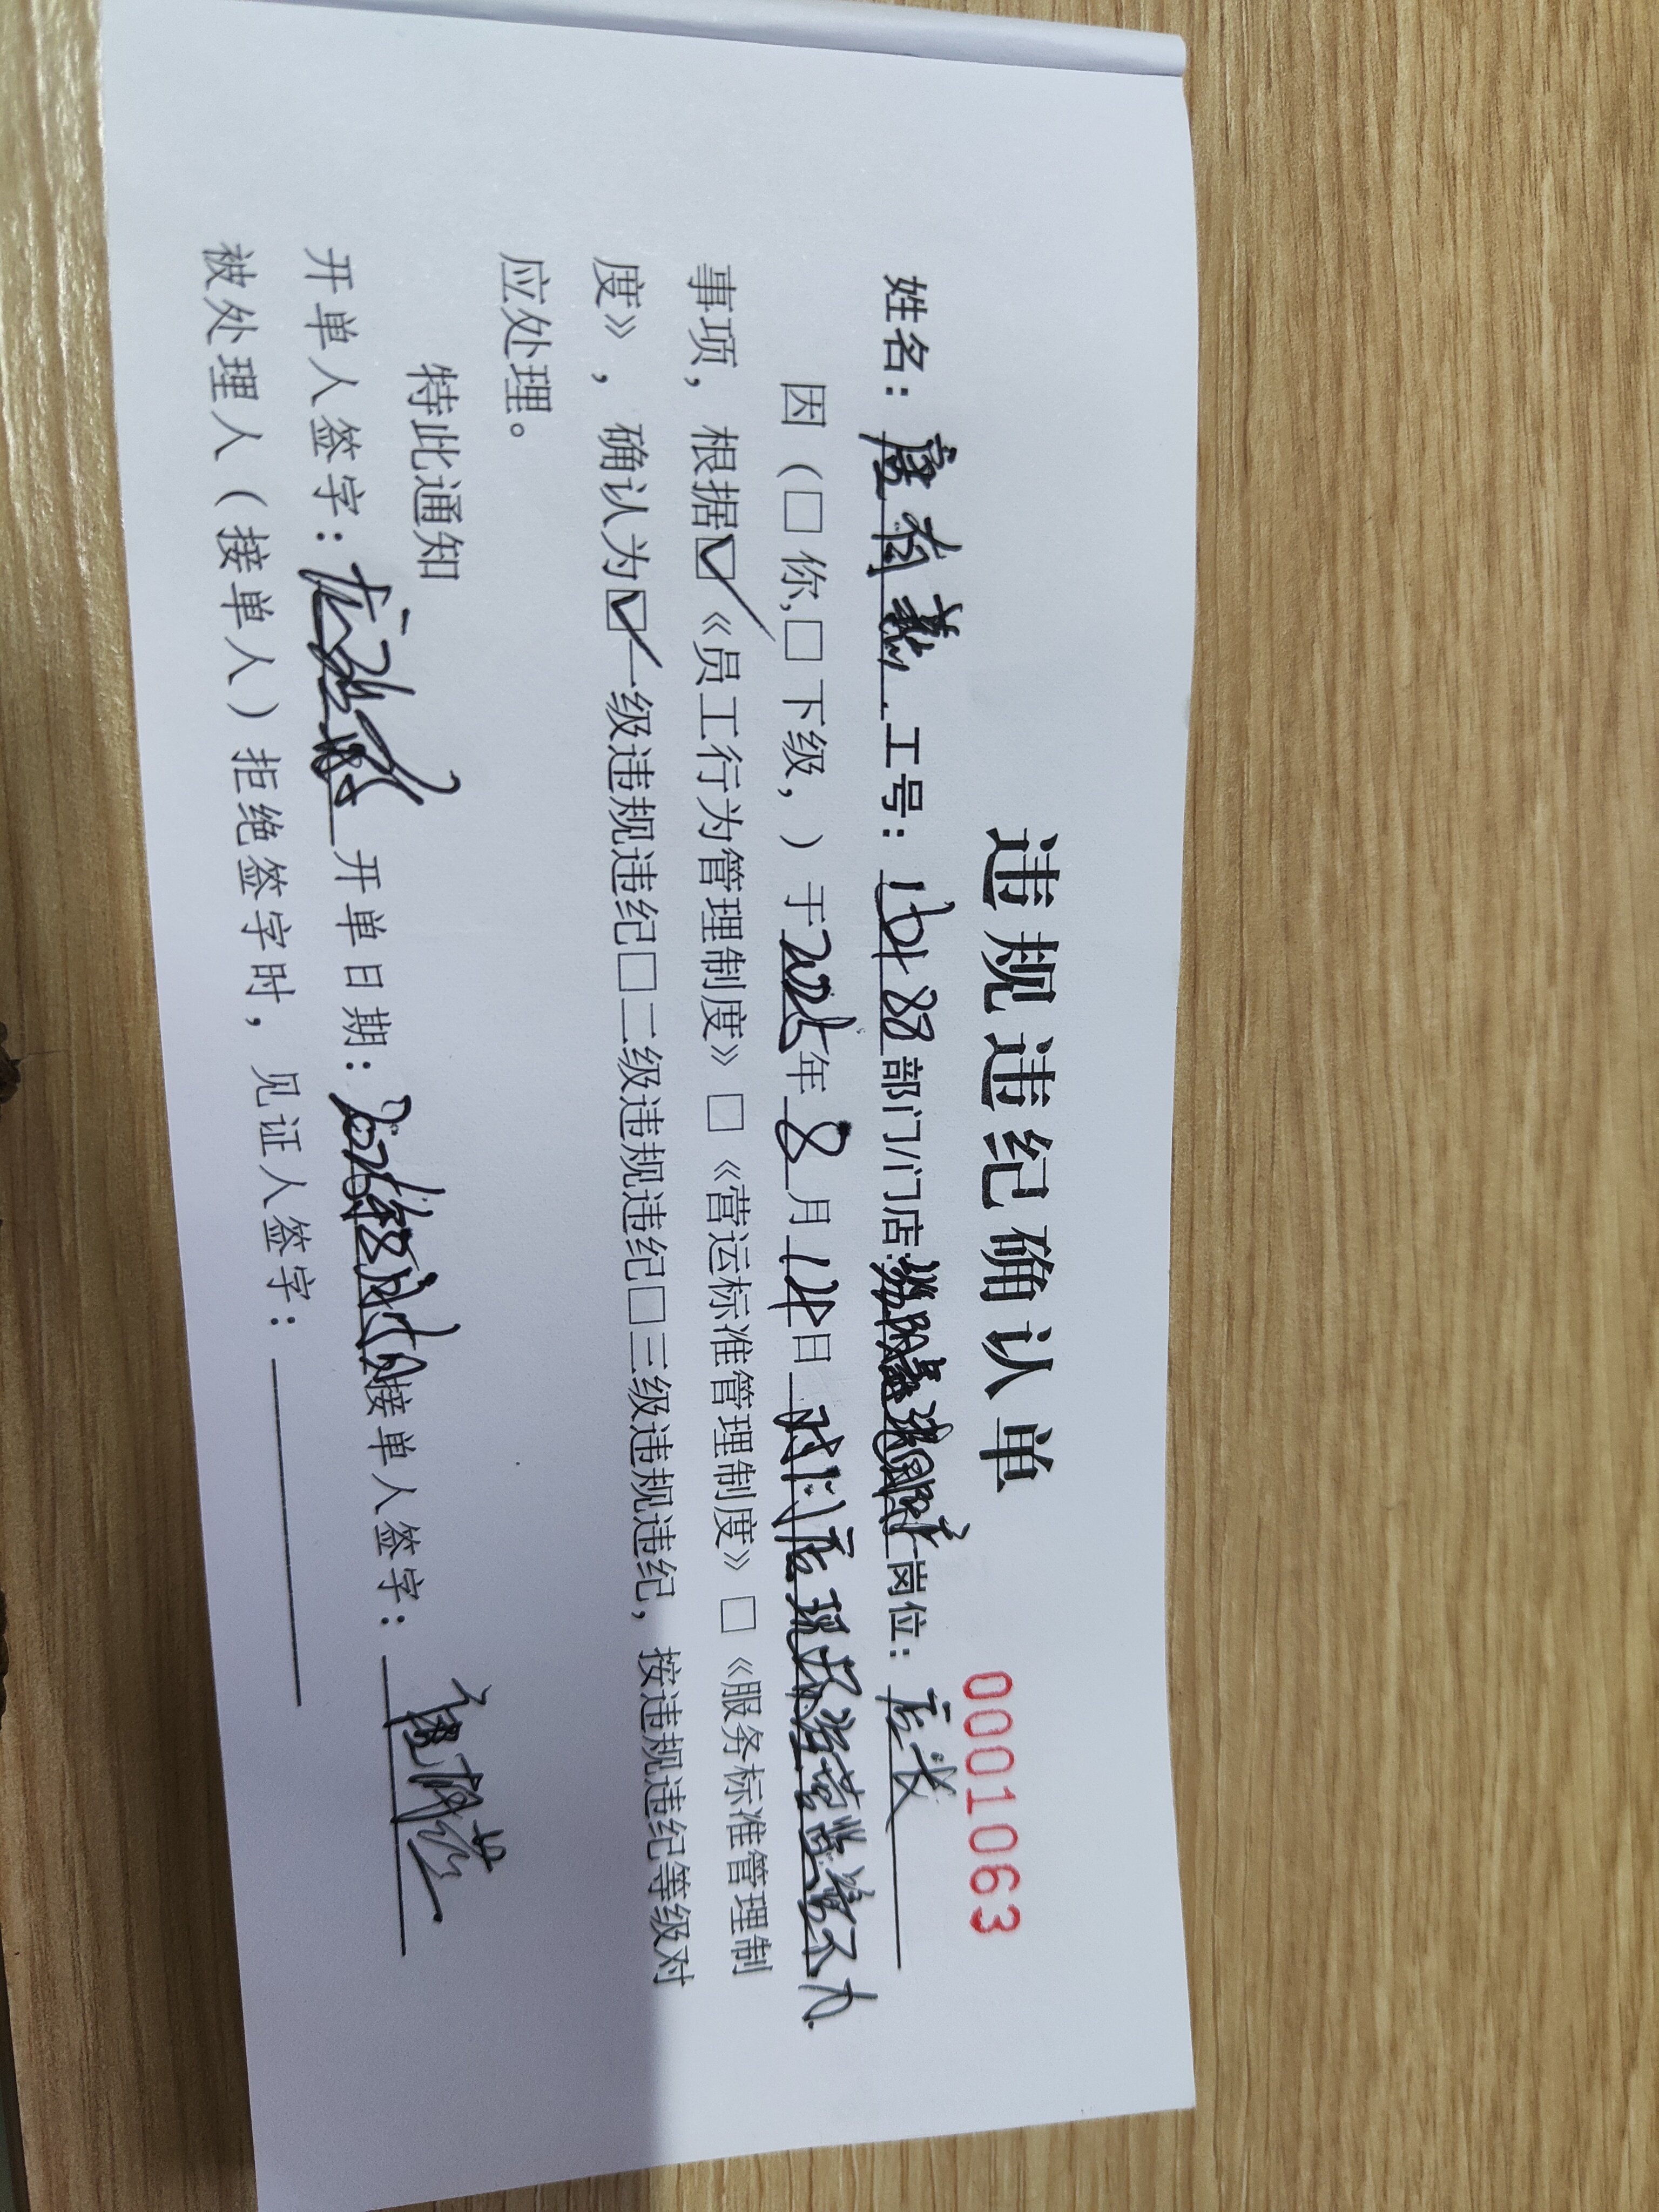 违规违纪确认单
0001063
姓名：唐有燕 工号： 部门/门店: 岗位：店长
因（□你,□下级，）于2025年8月12日对门店现场经营监管不力
事项，根据☑《员工行为管理制度》□《营运标准管理制度》□《服务标准管理制
度》，确认为☑一级违规违纪□二级违规违纪□三级违规违纪，按违规违纪等级对
应处理。
特此通知
开单人签字： 开单日期： 接单人签字：唐有燕
被处理人（接单人）拒绝签字时，见证人签字：